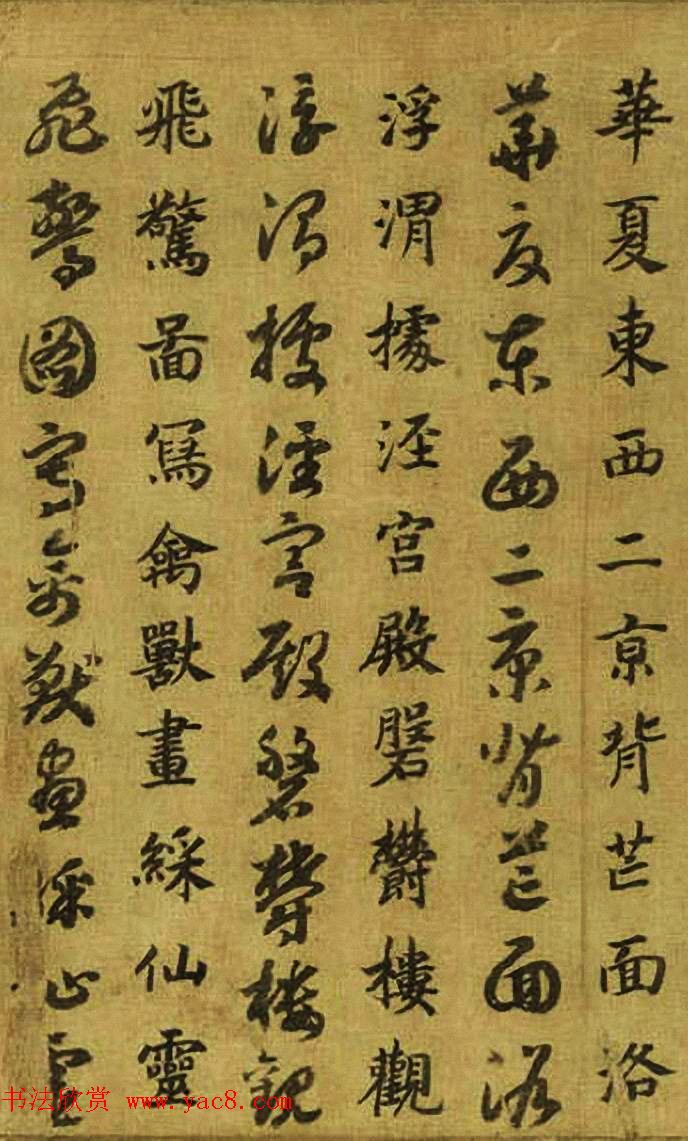 華夏東西二京背芒面洛
華夏東西二京背芒面洛
浮渭據泾宫殿磐欝樓觀
浮渭據泾宫殿磐欝樓觀
飛驚啚寫禽獸畫綵仙靈
飛驚圖寫禽獸畫綵仙靈
书法欣赏 www.yac8.com